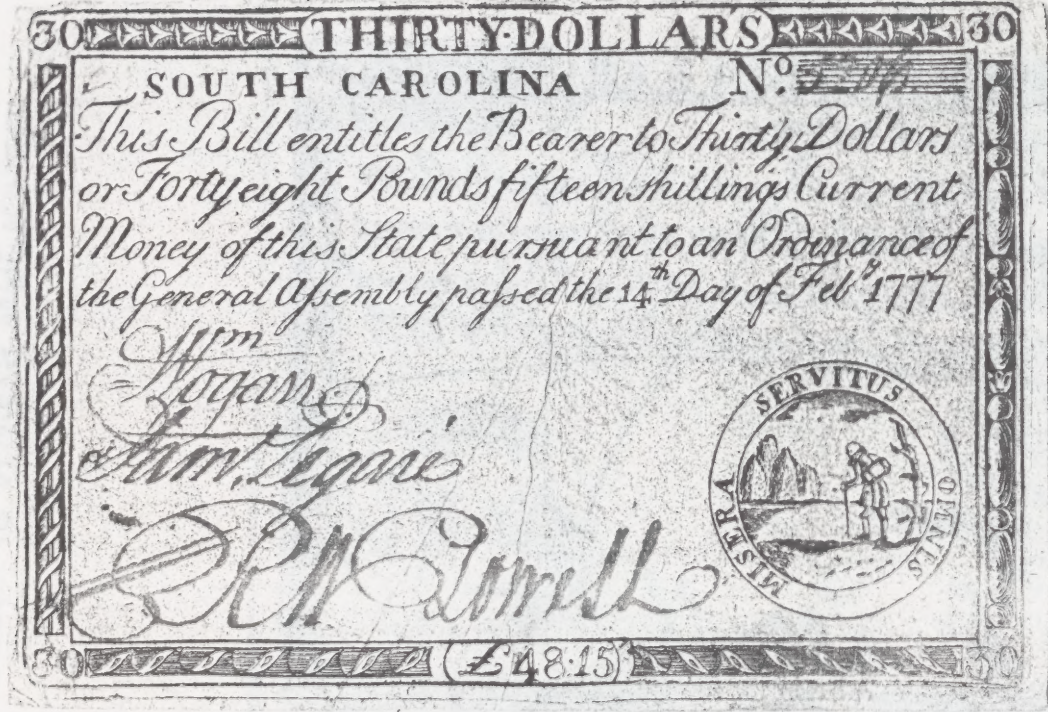 30 THIRTY·DOLLARS 30
SOUTH CAROLINA No.
This Bill entitles the Bearer to Thirty Dollars
or Forty eight Pounds fifteen shillings Current
Money of this State pursuant to an Ordinance of
the General Assembly passed the 14th Day of Feby 1777
Wm
Logan
Saml. Legaré
MISERA SERVITUS OMNIS
30 £48·15 30